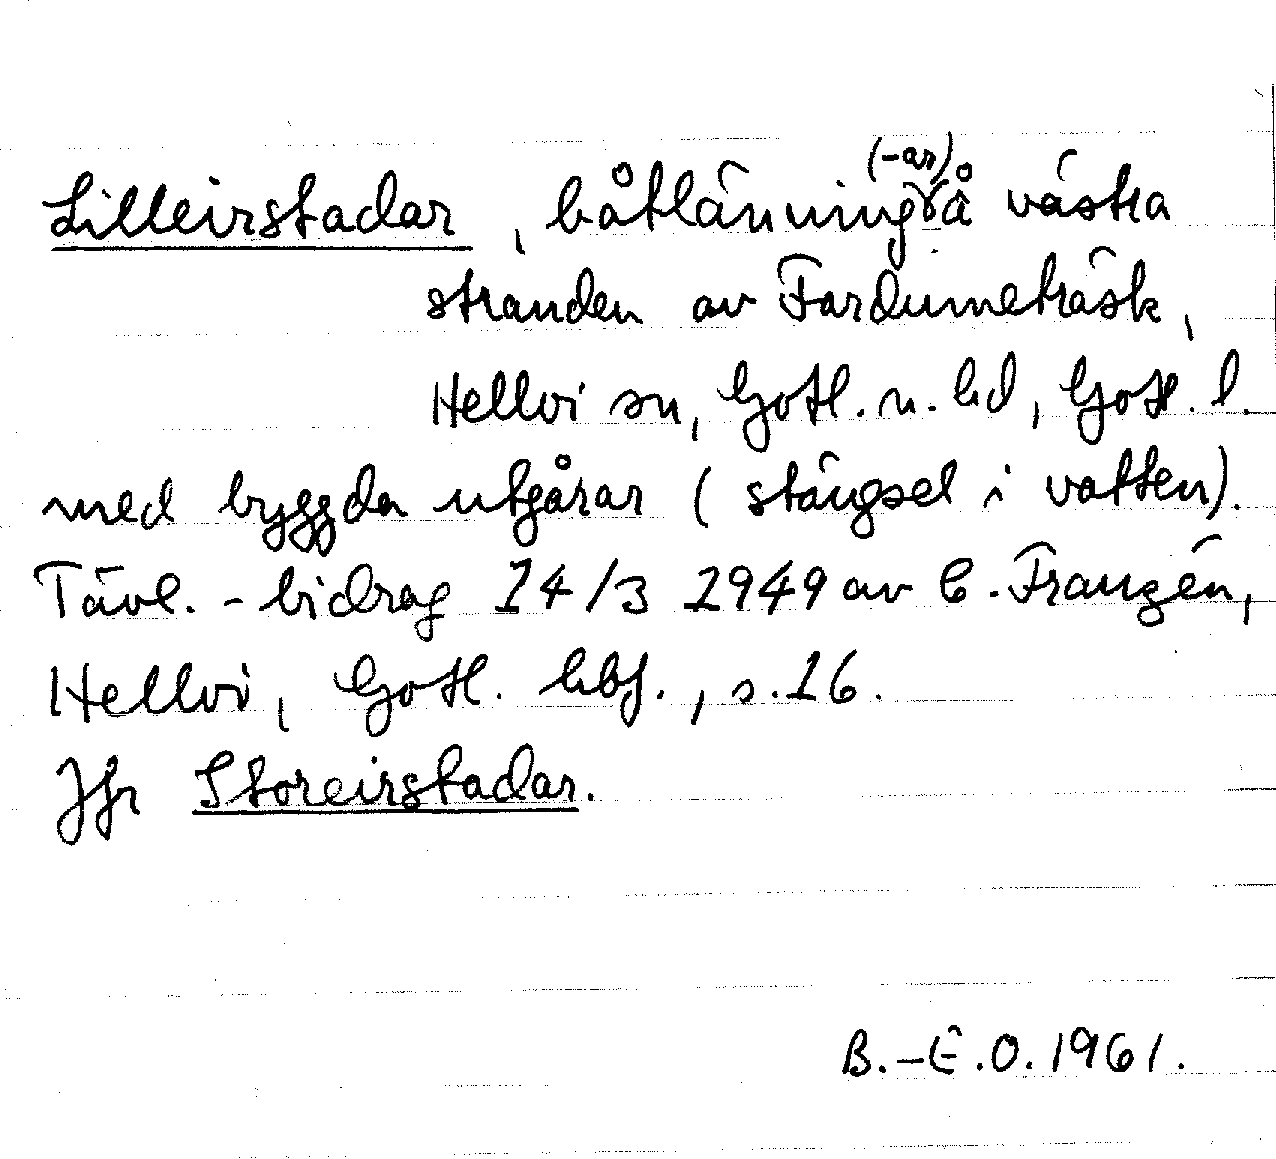 Lilleirstadar, båtlänning (-ar) å västra
stranden av Fardumeträsk,
Hellvi sn, Gotl. n. hd, Gotl. l.
med byggda utgårar (stängsel i vatten).
Tävl.-bidrag 14/3 1949 av C. Franzén,
Hellvi, Gotl. hbf., s. 16.
Jfr Storeirstadar.
B.-E.O. 1961.